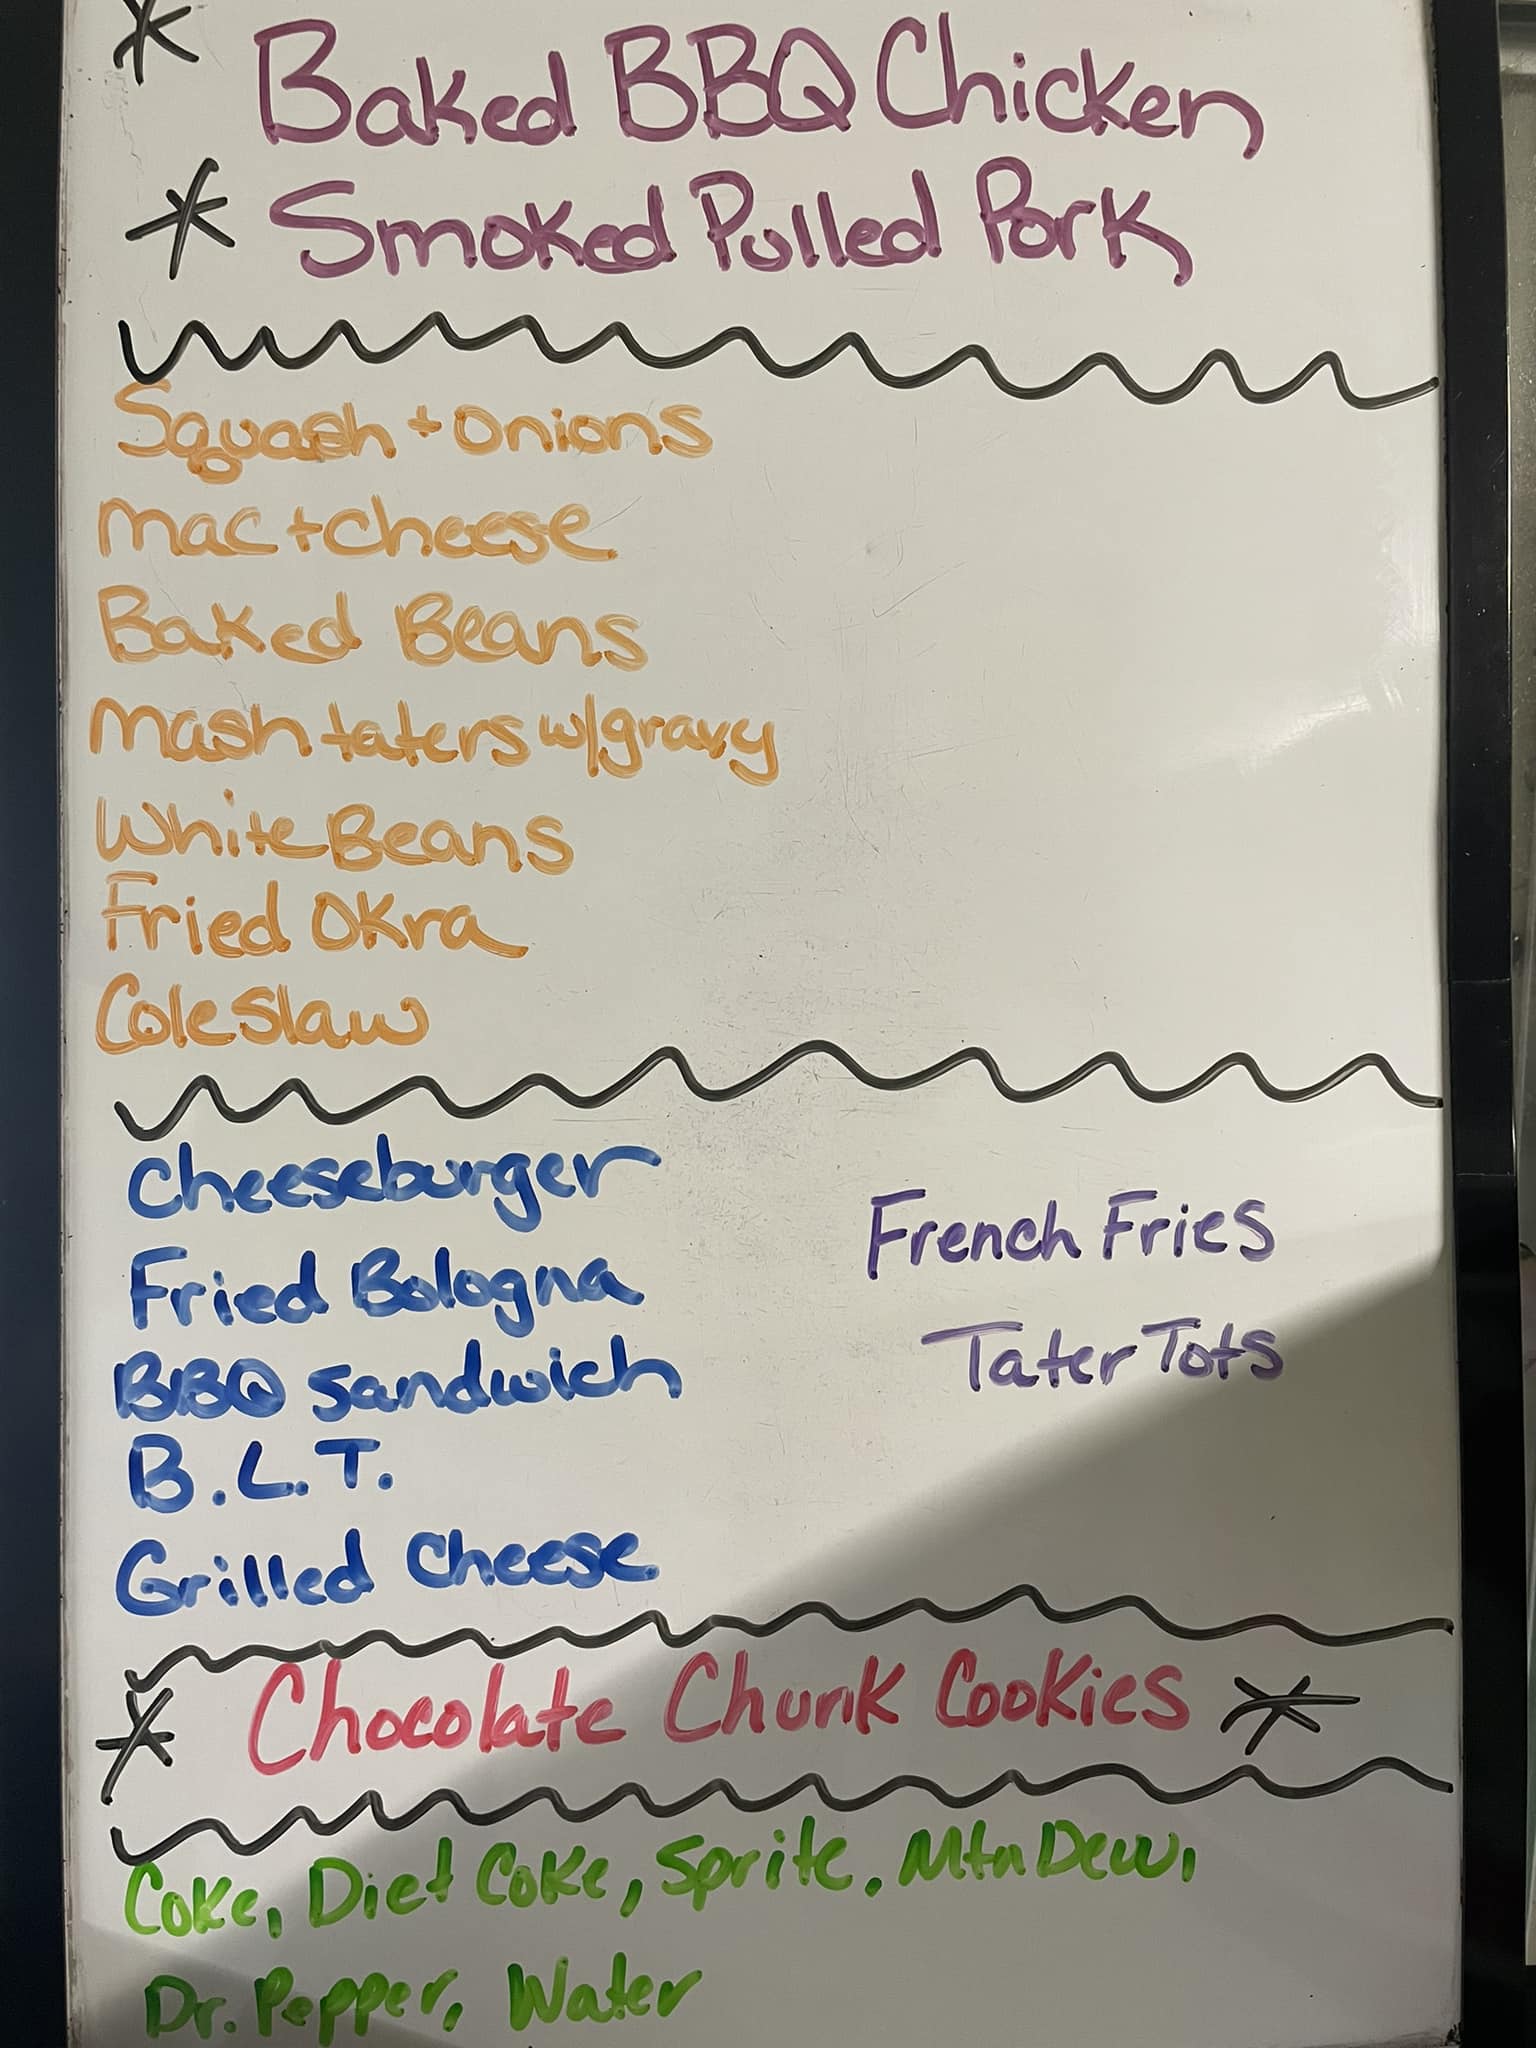 * Baked BBQ Chicken
* Smoked Pulled Pork
Squash + Onions
Mac + Cheese
Baked Beans
Mash taters w/gravy
White Beans
Fried Okra
Cole Slaw
Cheeseburger
Fried Bologna
French Fries
BBQ Sandwich
Tater Tots
B.L.T.
Grilled Cheese
* Chocolate Chunk Cookies *
Coke, Diet Coke, Sprite, Mtn Dew,
Dr. Pepper, Water